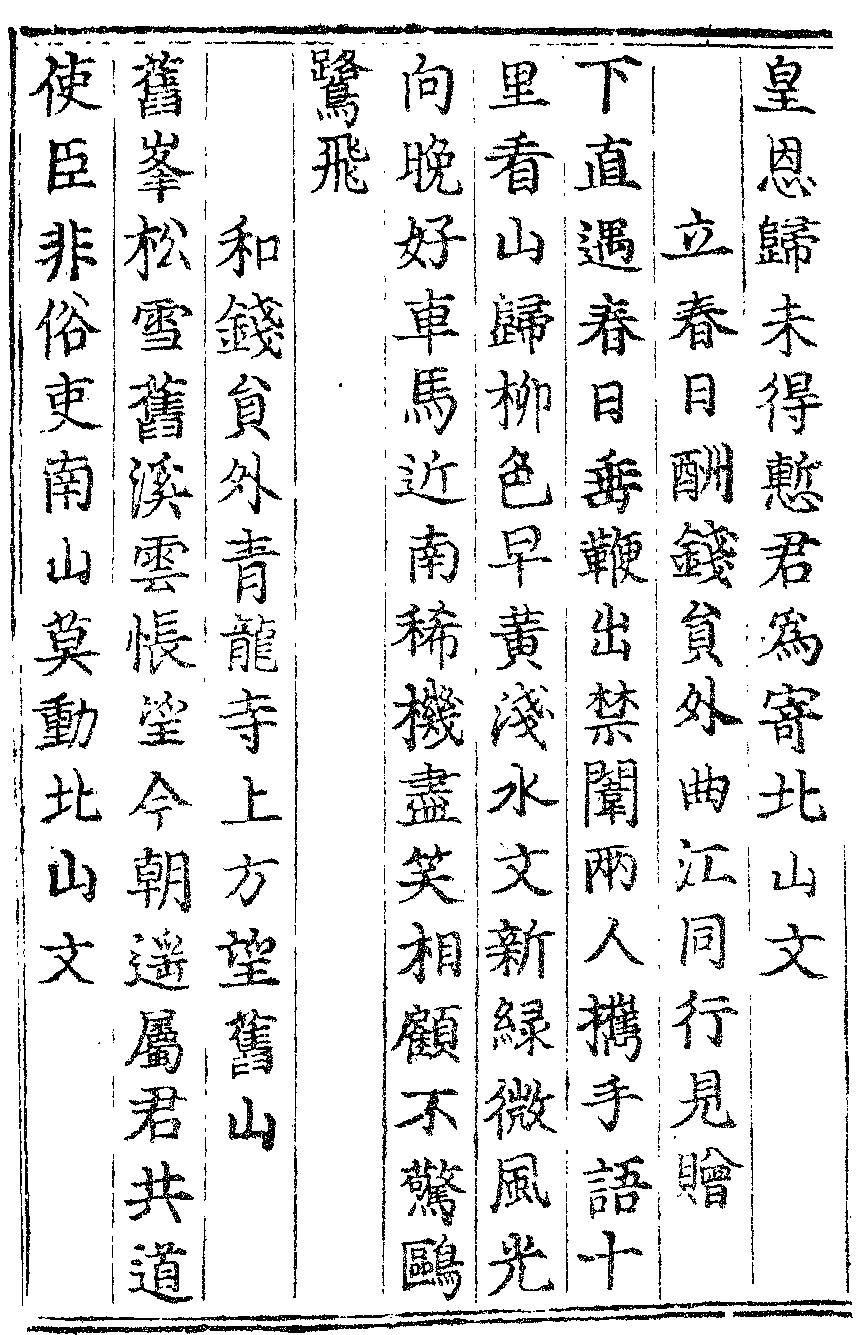 皇恩歸未得慙君爲寄北山文
立春日酬錢貟外曲江同行見贈
下直遇春日垂鞭出禁闈兩人攜手語十
里看山歸柳色早黃淺水文新緑微風光
向晚好車馬近南稀機盡笑相顧不驚鷗
鷺飛
和錢貟外青龍寺上方望舊山
舊峯松雪舊溪雲悵望今朝遥屬君共道
使臣非俗吏南山莫動北山文